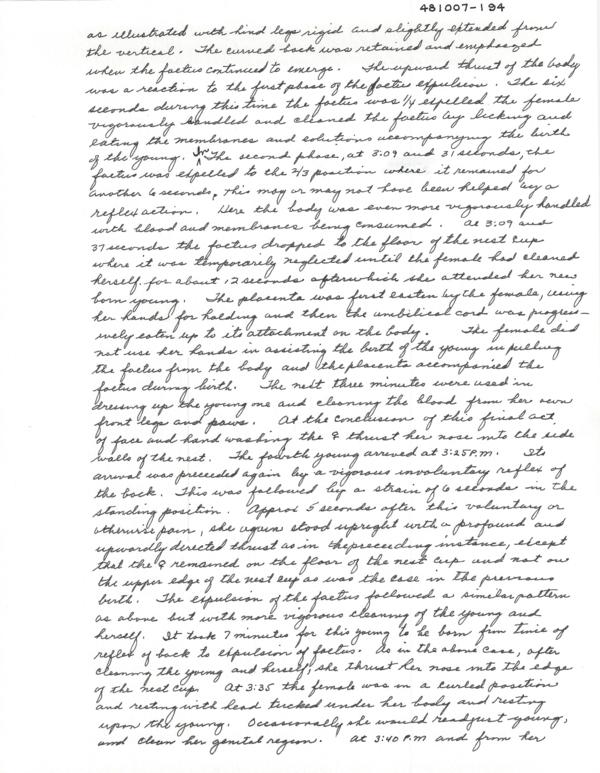 481007-194
as illustrated with hind legs rigid and slightly extended from
the vertical. The curved back was retained and emphasized
when the faetus continued to emerge. The upward thrust of the body
was a reaction to the first phase of the faetus expulsion. The six
seconds during this time the faetus was 1/4 expelled the female
vigorously handled and cleaned the faetus by licking and
eating the membranes and solutions accompanying the birth
of the young. In The second phase, at 3:09 and 31 seconds, the
faetus was expelled to the 2/3 position where it remained for
another 6 seconds, This may or may not have been helped by a
reflex action. Here the body was even more vigorously handled
with blood and membranes being consumed. At 3:09 and
37 seconds the faetus dropped to the floor of the nest cup
where it was temporarily neglected until the female had cleaned
herself for about 12 seconds after which she attended her new
born young. The placenta was first easten by the female, using
her hands for holding and then the umbilical cord was progress-
ively eaten up to its attachment on the body. The female did
not use her hands in assisting the birth of the young in pulling
the faetus from the body and the placenta accompanied the
faetus during birth. The next three minutes were used in
dressing up the young one and cleaning the blood from her own
front legs and paws. At the conclusion of this final act
of face and hand washing the ♀ thrust her nose into the side
walls of the nest. The fourth young arrived at 3:25 P.M. Its
arrival was preceeded again by a vigorous involuntary reflex of
the back. This was followed by a strain of 6 seconds in the
standing position. Approx 5 seconds after this voluntary or
otherwise pain, she again stood upright with a profound and
upwardly directed thrust as in the preceeding instance, except
that the ♀ remained on the floor of the nest cup and not on
the upper edge of the nest cup as was the case in the previous
birth. The expulsion of the faetus followed a similar pattern
as above but with more vigorous cleaning of the young and
herself. It took 7 minutes for this young to be born from time of
reflex of back to expulsion of faetus. As in the above case, after
cleaning the young and herself, she thrust her nose into the edge
of the nest cup. At 3:35 the female was in a curled position
and resting with head tucked under her body and resting
upon the young. Occasionally she would readjust young,
and clean her genital region. At 3:40 P.M and from her